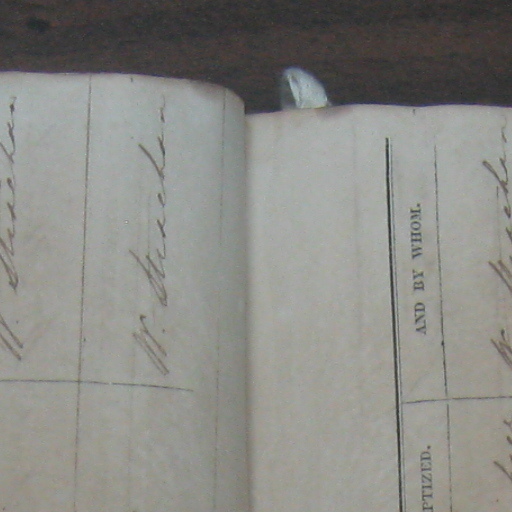 W. Strachan
W. Strachan
PTIZED. AND BY WHOM.
W. Strachan